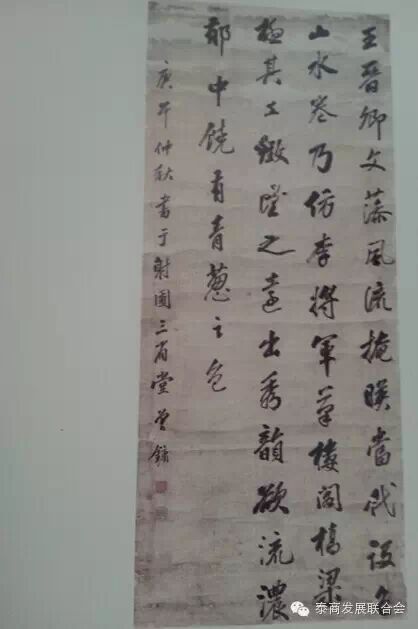 王晋卿文藻風流掩暎當代設色
山水卷乃仿李将軍筆楼閣橋梁
極其工緻望之遠出秀韻欲流濃
郁中饒有青蔥之色
庚午仲秋書于射圃三省堂 曾鏞
泰商发展联合会